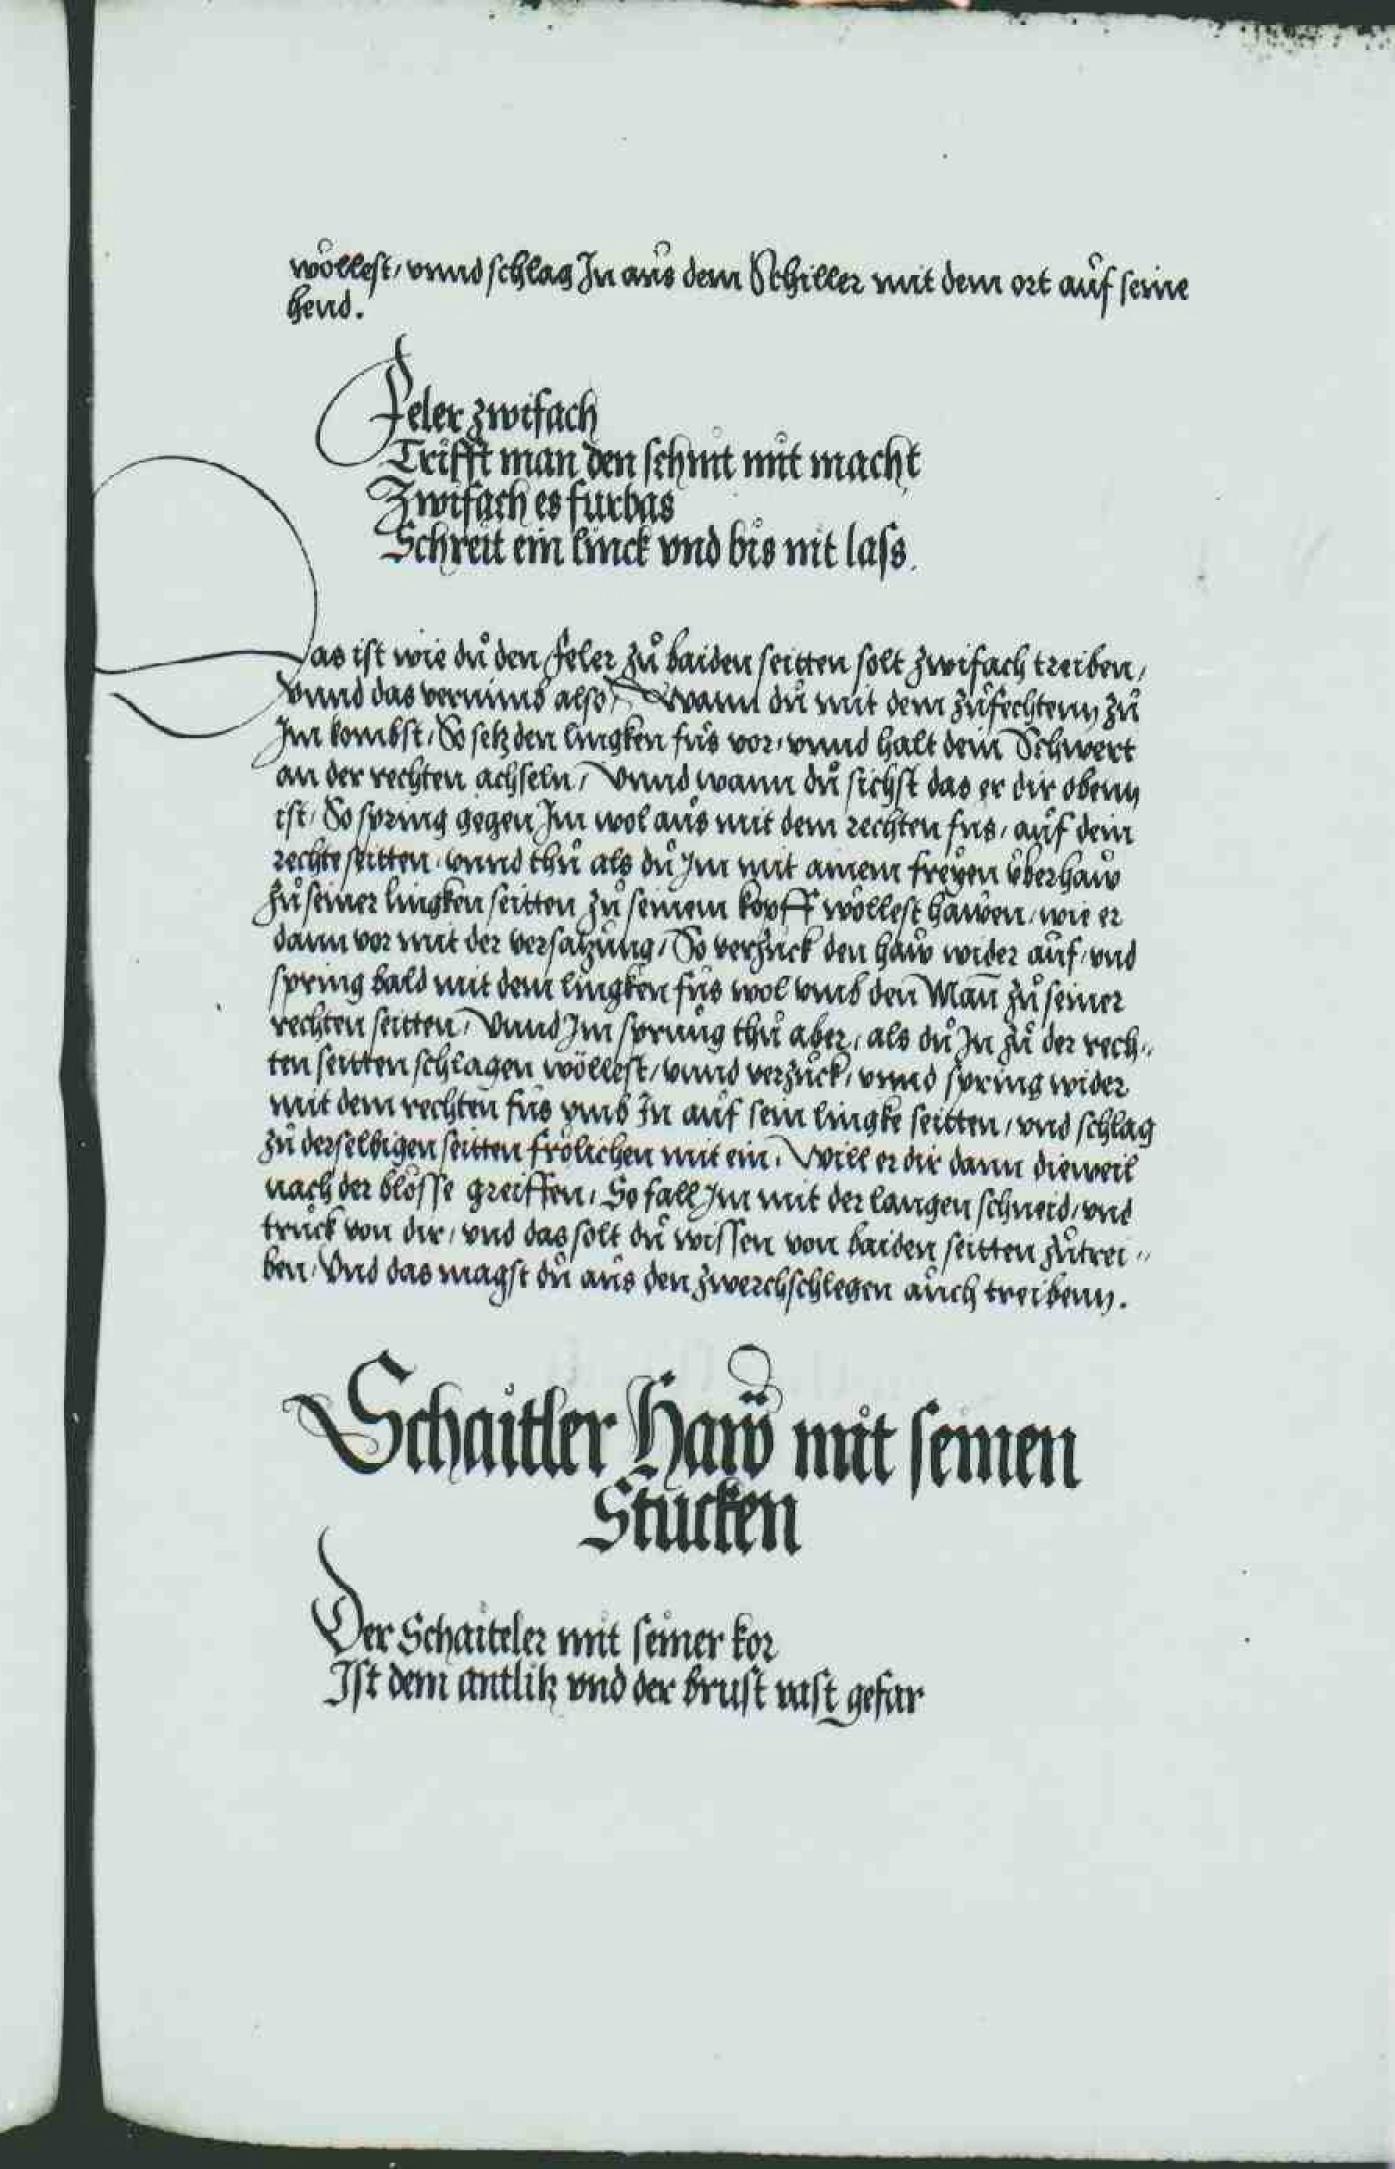 wöllest, vnnd schlag In aus dem Schiller mit dem ort auf seine
hend.
Feler zwifach
Trifft man den schnit mit macht
Zwifach es furbas
Schreit ein linck vnd bis nit lass.
Das ist wie dů den feler zů baiden seitten solt zwifach treiben,
vnnd das vernimb also, Wann dů mit dem zůfechtenn zů
Im kombst, So setz den lingken fůs vor, vnnd halt dein Schwert
an der rechten achseln, Vnnd wann dů sichst das er dir obenn
ist, So spring gegen Im wol aus mit dem rechten fůs, auf dein
rechte seitten, vnnd thů als dů Im mit ainem freyen überhaw
zů seiner lingken seitten zů seinem kopff wöllest hawen, wie er
dann vor mit der versatzung, So verzuck den haw wider auf, vnd
spring bald mit dem lingken fůs wol vmb den Man̄ zů seiner
rechten seitten, Vnnd Im sprung thů aber, als dů In zů der rech„
ten seitten schlagen wöllest, vnnd verzuck, vnnd spring wider
mit dem rechten fůs vmb In auf sein lingke seitten, vnd schlag
zů derselbigen seitten frölichen mit ein. Will er dir dann dieweil
nach der blösse greiffen, So fall Im mit der langen schneid, vnd
truck von dir, vnd das solt dů wissen von baiden seitten zůtrei„
ben. Vnd das magst dů aus den zwerchschlegen auch treibenn.
Schaitler Haw mit seinen
Stucken
Der Schaiteler mit seiner kor
Ist dem antlitz vnd der brust vast gefar